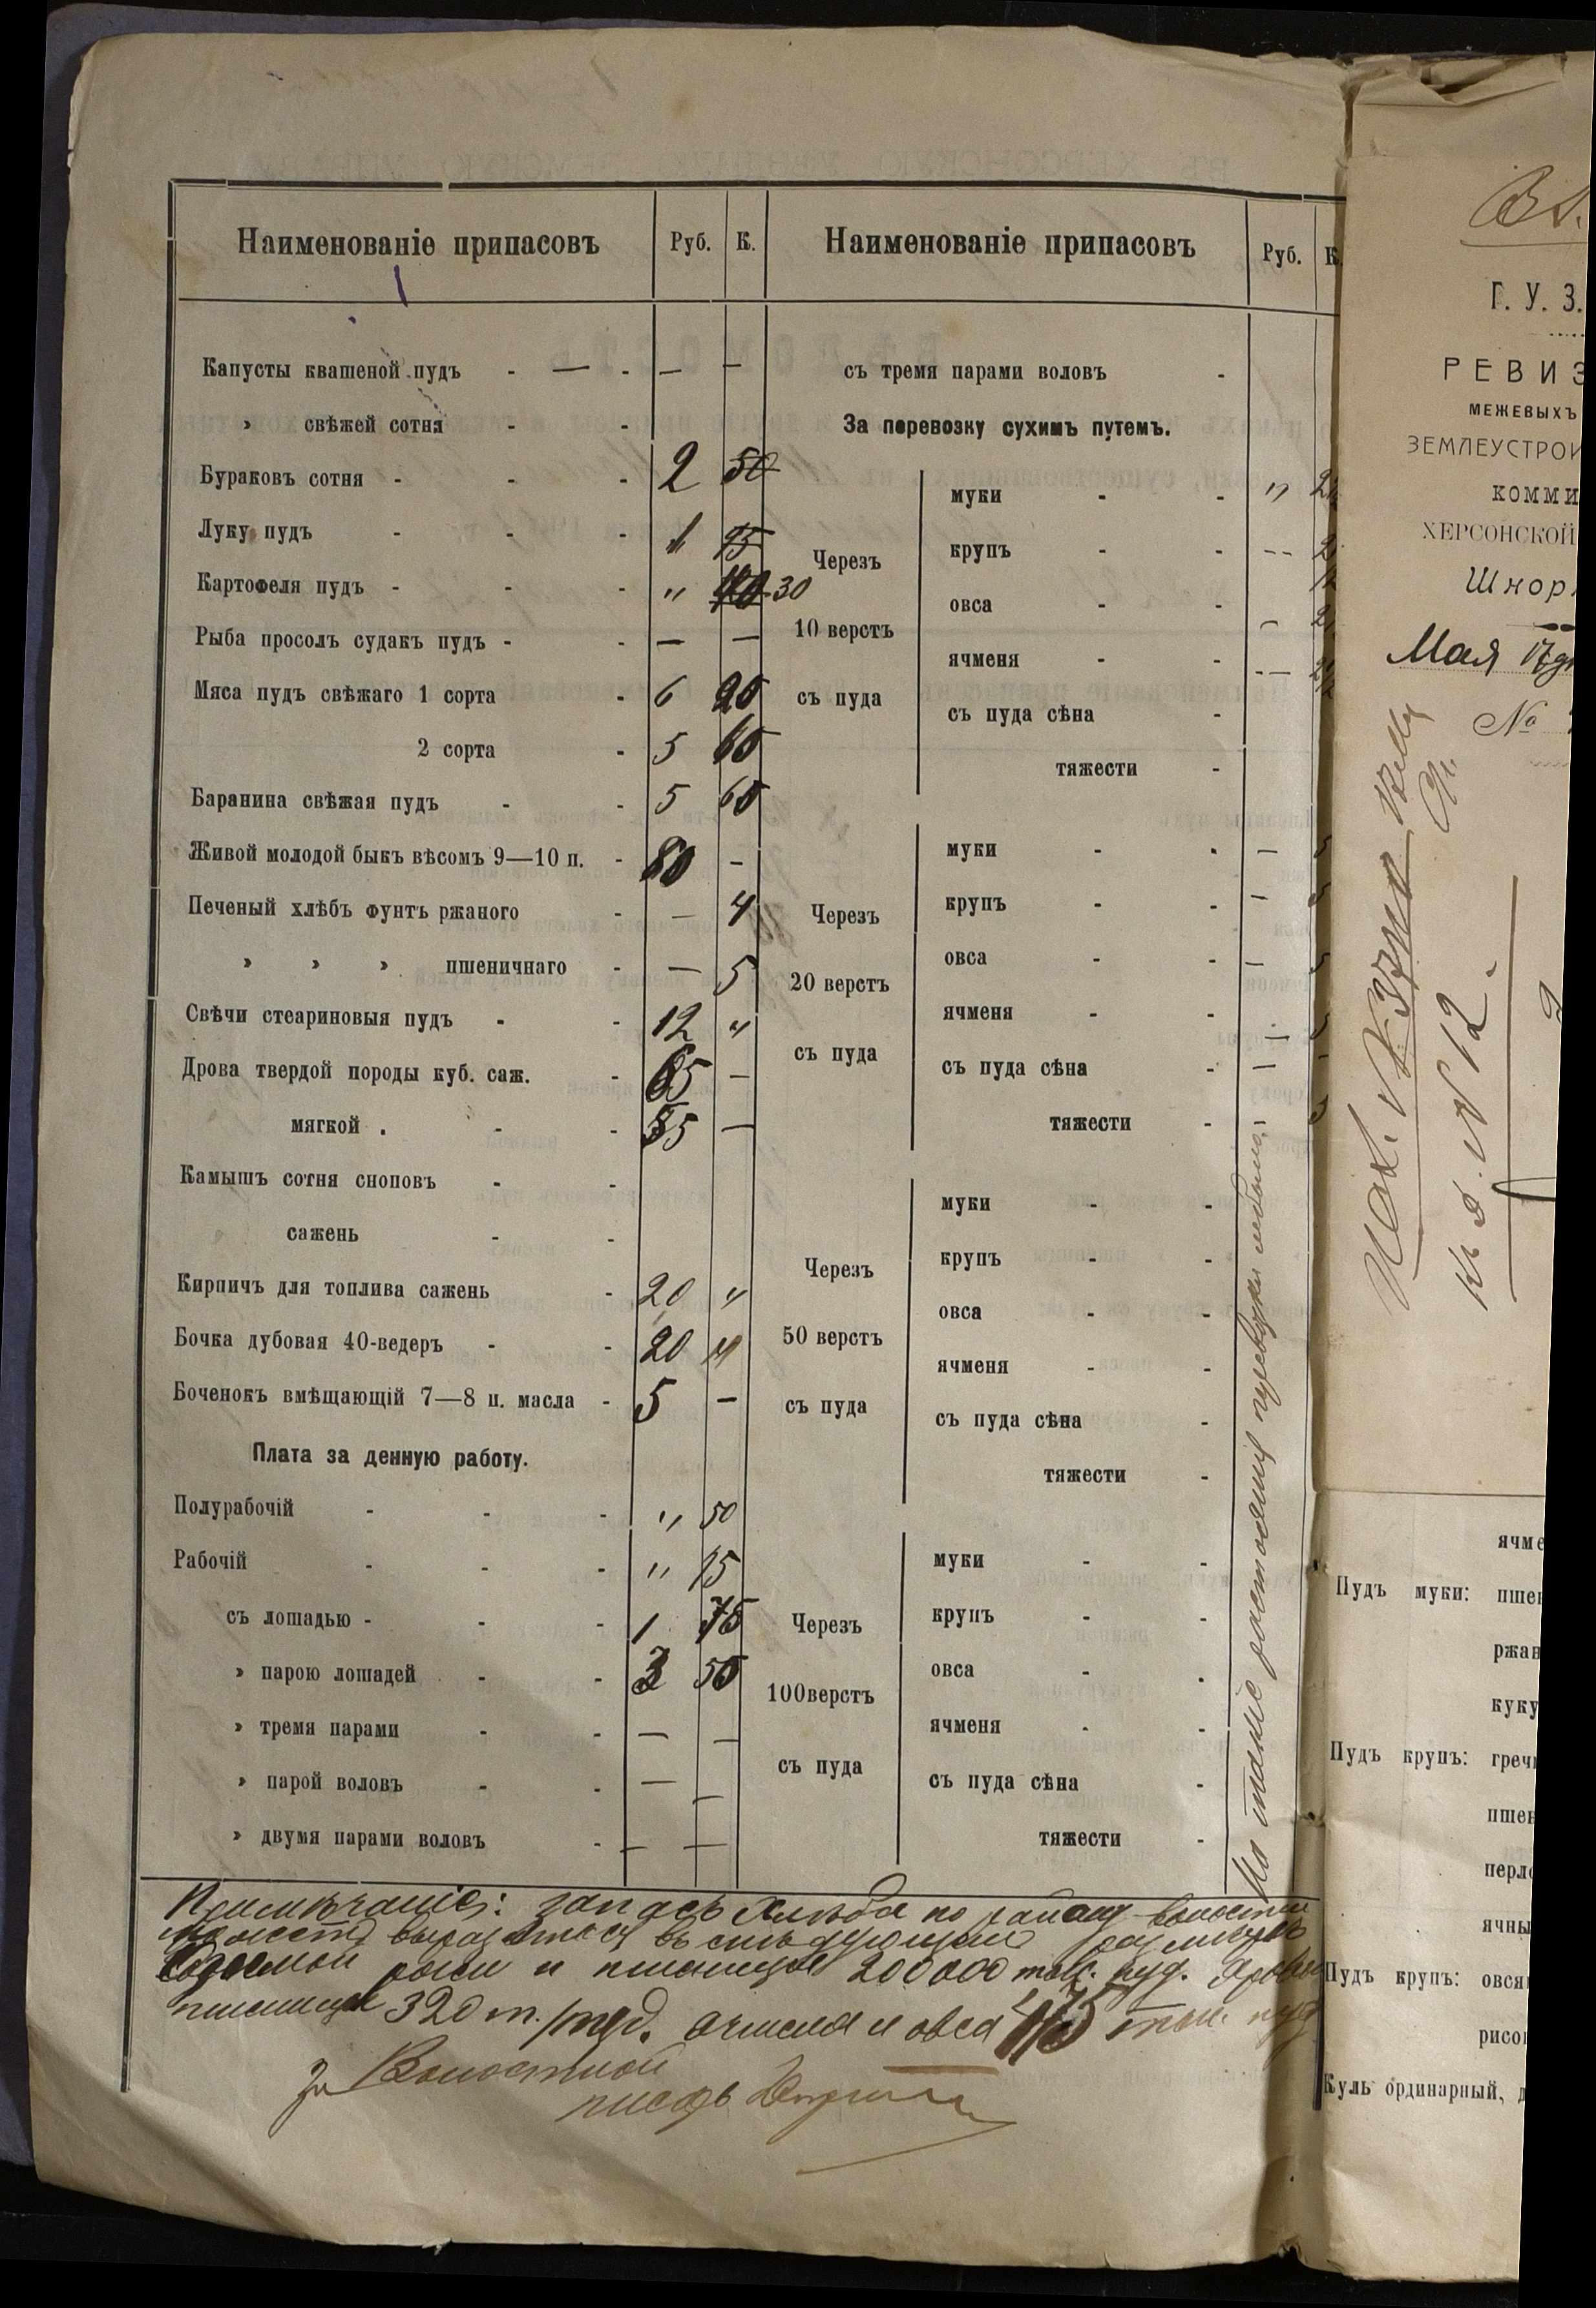 Наименованіе припасовъ Руб. К.
Капусты квашеной пудъ - — - — —
» свѣжей сотня - -
Бураковъ сотня - - - 2 50
Луку пудъ - - -
Картофеля пудъ - - - " 30
Рыба просолъ судакъ пудъ - - — —
Мяса пудъ свѣжаго 1 сорта - 6 20
2 сорта - 5 60
Баранина свѣжая пудъ - - 5 60
Живой молодой быкъ вѣсомъ 9—10 п. - 80 -
Печеный хлѣбъ фунтъ ржаного - — 4
» » » пшеничнаго - — 5
Свѣчи стеариновыя пудъ - - 12 "
Дрова твердой породы куб. саж. - 65 —
мягкой . - - 55 —
Камышъ сотня сноповъ - -
сажень - -
Кирпичъ для топлива сажень - 20 "
Бочка дубовая 40-ведеръ - - 20 "
Боченокъ вмѣщающій 7—8 п. масла - 5 —
Плата за денную работу.
Полурабочій - - - " 50
Рабочій - - - " 75
съ лошадью - - - 1 75
» парою лошадей - - 3 50
» тремя парами - - — —
» парой воловъ - - — —
» двумя парами воловъ - — —
Наименованіе припасовъ Руб. К
съ тремя парами воловъ -
За перевозку сухимъ путемъ.
Черезъ 10 верстъ съ пуда
муки - - "
крупъ - - --
овса - -
ячменя - - --
съ пуда сѣна -
тяжести -
Черезъ 20 верстъ съ пуда
муки - - — 5
крупъ - - — 5
овса - - — 5
ячменя - - —
съ пуда сѣна - —
тяжести -
Черезъ 50 верстъ съ пуда
муки - -
крупъ - -
овса - -
ячменя - -
съ пуда сѣна -
тяжести -
Черезъ 100верстъ съ пуда
муки - -
крупъ - -
овса - -
ячменя - -
съ пуда сѣна -
тяжести -
На такіе разстоянія перевозки небыло
Примѣчаніе: запасъ хлѣба по району волости
можетъ выразиться въ слѣдующемъ размѣрѣ
озимой ржи и пшеницы 200000 тыс. пуд. Яровой
пшеницы 320 т. пуд. ячменя и овса 475 тыс. пуд
За Волостной
писарь
Г. У. З.
РЕВИЗ
МЕЖЕВЫХЪ
ЗЕМЛЕУСТРОИ
КОММИ
ХЕРСОНСКОЙ
Мая 17 дн
№
К. д. № 12.
ячме
Пудъ муки: пшен
ржан
куку
Пудъ крупъ: гречн
пшен
перло
ячны
Пудъ крупъ: овсян
рисов
Куль ординарный, д